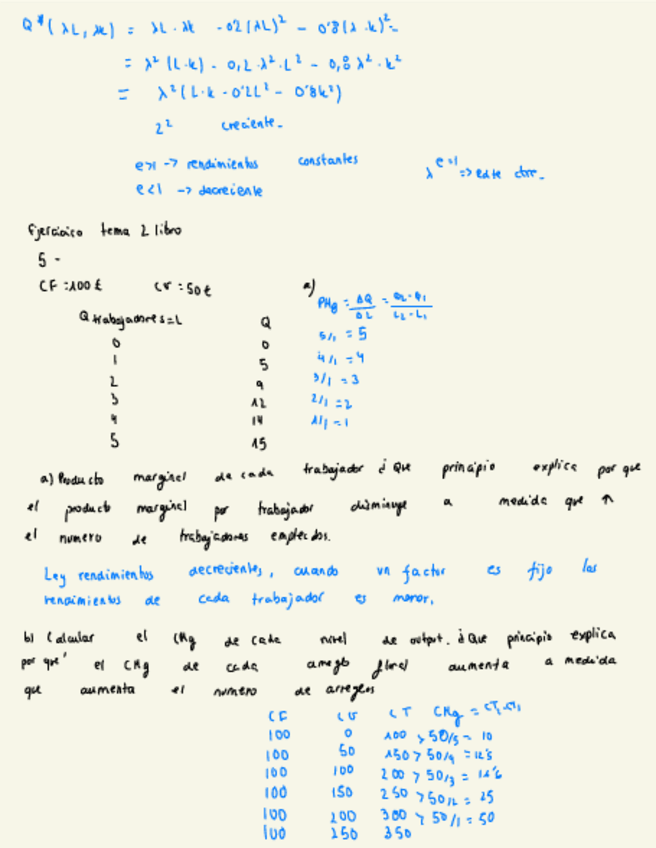 Q*(λL, λk) = λL · λk - 0'2(λL)² - 0'8(λ·k)² =
= λ²(L·k) - 0,2·λ²·L² - 0,8λ²·k²
= λ²(L·k - 0'2L² - 0'8k²)
2² creciente.
e>1 -> rendimientos constantes
λ^e=1 => este
e<1 -> decreciente
Ejercicico tema 2 libro
5 -
CF = 100€ CV = 50€ a)
PMg = ΔQ/ΔL = Q2-Q1/L2-L1
Q trabajadores = L Q
0 0 5/1 = 5
1 5 4/1 = 4
2 9 3/1 = 3
3 12 2/1 = 2
4 14 1/1 = 1
5 15
a) Producto marginal de cada trabajador ¿ Que principio explica por que
el producto marginal por trabajador disminuye a medida que ↑
el numero de trabajadores empleados.
Ley rendimientos decrecientes, cuando un factor es fijo los
rendimientos de cada trabajador es menor.
b) Calcular el CMg de cada nivel de output. ¿ Que principio explica
por que' el CMg de cada arreglo floral aumenta a medida
que aumenta el numero de arreglos
CF CV CT CMg = CT2-CT1
100 0 100 > 50/5 = 10
100 50 150 > 50/4 = 12'5
100 100 200 > 50/3 = 16'6
100 150 250 > 50/2 = 25
100 200 300 > 50/1 = 50
100 250 350